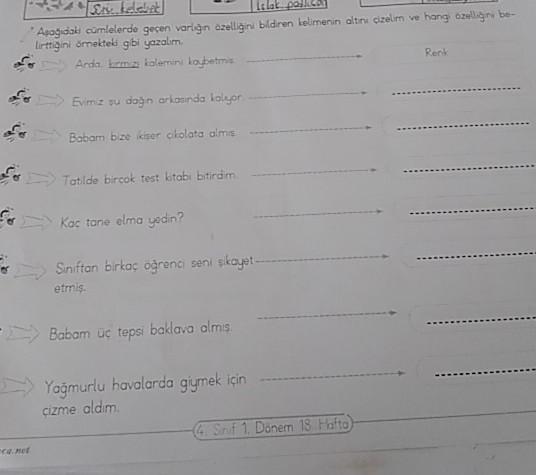 Islak patlıcan
Aşağıdaki cümlelerde geçen varlığın özelliğini bildiren kelimenin altını çizelim ve hangi özelliğini be-
lirttiğini örnekteki gibi yazalım.
Arda, kırmızı kalemini kaybetmiş. Renk
Evimiz şu dağın arkasında kalıyor.
Babam bize ikişer çikolata almış.
Tatilde birçok test kitabı bitirdim.
Kaç tane elma yedin?
Sınıftan birkaç öğrenci seni şikayet
etmiş.
Babam üç tepsi baklava almış.
Yağmurlu havalarda giymek için
çizme aldım.
4. Sınıf 1. Dönem 18. Hafta
ca.net